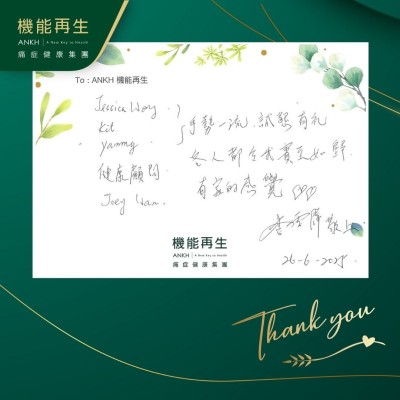 機能再生
ANKH | A New Key to Health
癌症健康集團
To : ANKH 機能再生
Jessica Wong
Kit
Yammy
健康顧問
Joey Wan
手勢一流, 誠懇有禮
令人都
有家的感覺
敬上
26-6-2025
機能再生
ANKH | A New Key to Health
癌症健康集團
Thank you